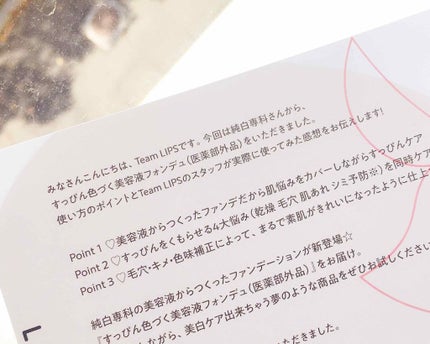 みなさんこんにちは、Team LIPSです。今回は純白専科さんから、
すっぴん色づく美容液フォンデュ（医薬部外品）をいただきました。
使い方のポイントとTeam LIPSのスタッフが実際に使ってみた感想をお伝えします！
Point 1 ♡美容液からつくったファンデだから肌悩みをカバーしながらすっぴんケア
Point 2 ♡すっぴんをくもらせる4大悩み（乾燥 毛穴 肌あれ シミ予防※）を同時ケア
Point 3 ♡毛穴・キメ・色味補正によって、まるで素肌がきれいになったように仕上
純白専科の美容液からつくったファンデーションが新登場☆
『すっぴん色づく美容液フォンデュ（医薬部外品）』をお届け。
ながら、美白ケア出来ちゃう夢のような商品をぜひお試しください
いただきました。